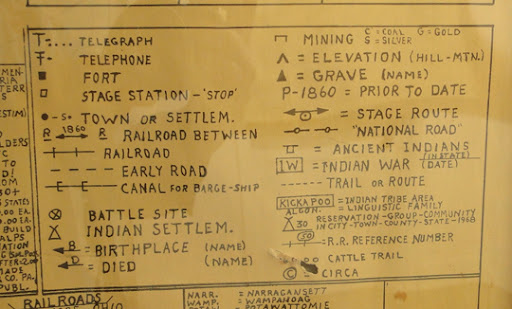 T-.... TELEGRAPH
TELEPHONE
FORT
STAGE STATION - 'STOP'
•-S• TOWN OR SETTLEM.
R 1860 R RAILROAD BETWEEN
RAILROAD
EARLY ROAD
CANAL FOR BARGE-SHIP
BATTLE SITE
INDIAN SETTLEM.
B = BIRTHPLACE (NAME)
D = DIED (NAME)
MINING C = COAL G = GOLD
S = SILVER
= ELEVATION (HILL-MTN.)
= GRAVE (NAME)
P-1860 = PRIOR TO DATE
= STAGE ROUTE
"NATIONAL ROAD"
= ANCIENT INDIANS
(IN STATE)
IW = INDIAN WAR (DATE)
TRAIL OR ROUTE
KICKAPOO = INDIAN TRIBE AREA
ALGON. = LINGUISTIC FAMILY
30 RESERVATION-GROUP-COMMUNITY
IN CITY-TOWN-COUNTY-STATE-1968
50 = R.R. REFERENCE NUMBER
CATTLE TRAIL
© = CIRCA
RAILROADS
OHIO
NARR. = NARRAGANSETT
WAMP. = WAMPANOAG
= POTAWATTOMIE
MEN-
RIA
TERR
S
ESTIM)
OLDERS
C
TO
D!
OM
30+
STATES
.00 EA.
.00 EA
BUILD
ALPS
TATION
MADE
CO. PA.
PUBL.